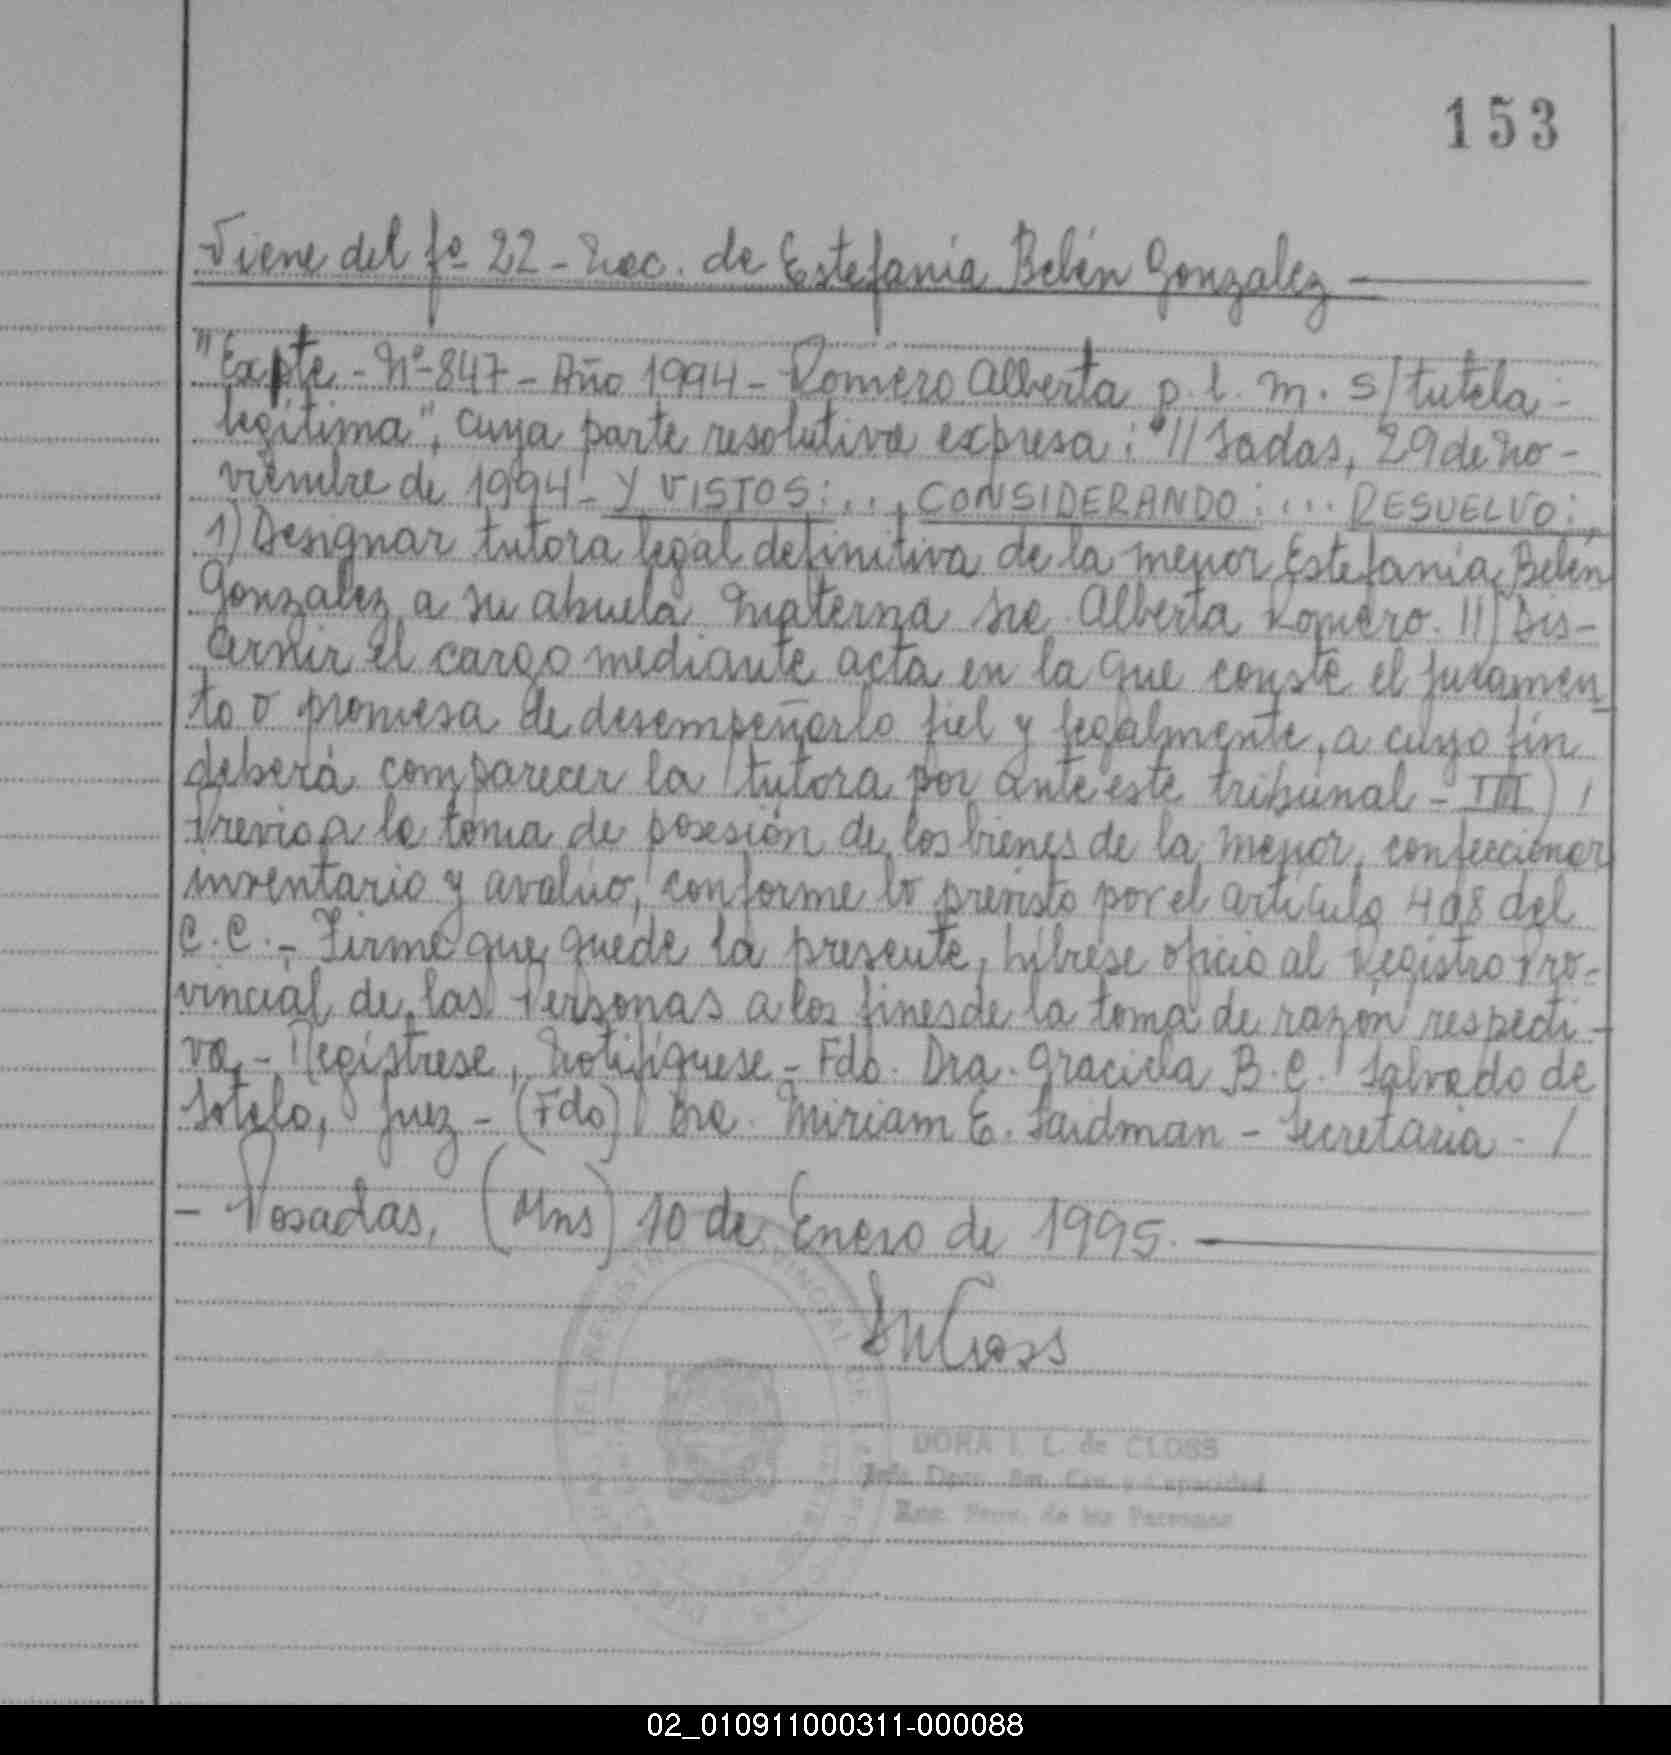 153
Viene del fº 22 - Nac. de Estefanía Belén Gonzalez
"Expte - Nº 847 - Año 1994 - Romero Alberta p. l. m. s/ tutela -
legítima", cuya parte resolutiva expresa: "//sadas, 29 de no-
viembre de 1994 - Y VISTOS: ... CONSIDERANDO: ... RESUELVO:
1) Designar tutora legal definitiva de la menor Estefanía Belén
Gonzalez a su abuela materna sra Alberta Romero. II) Dis-
cernir el cargo mediante acta en la que conste el juramen-
to o promesa de desempeñarlo fiel y legalmente, a cuyo fin
deberá comparecer la tutora por ante este tribunal - III) /
Previo a la toma de posesión de los bienes de la menor, confeccionar
inventario y avalúo, conforme lo previsto por el artículo 408 del
C.C. - Firme que quede la presente, líbrese oficio al Registro Pro-
vincial de las Personas a los fines de la toma de razón respecti-
va - Regístrese, Notifíquese - Fdo. Dra. Graciela B. C. Salvado de
Sotelo, Juez - (Fdo) Dra. Miriam E. Saidman - Secretaria - /
- Posadas, (Mns) 10 de Enero de 1995.
DORA I. L. de CLOSS
Reg. Prov. de las Personas
02_010911000311-000088